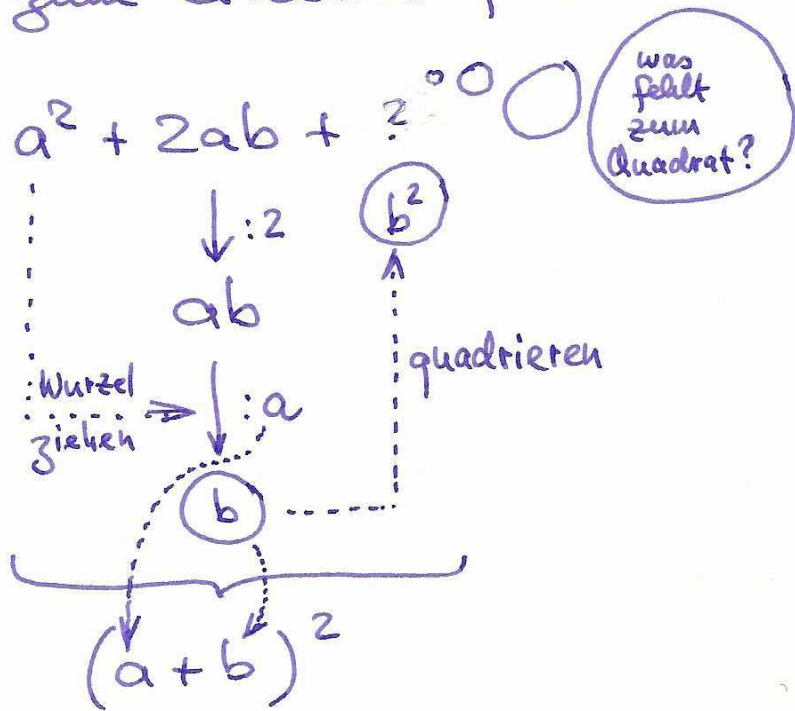 a² + 2ab + ?
was
fehlt
zum
Quadrat?
:2
b²
ab
quadrieren
Wurzel
ziehen
:a
b
(a + b)²